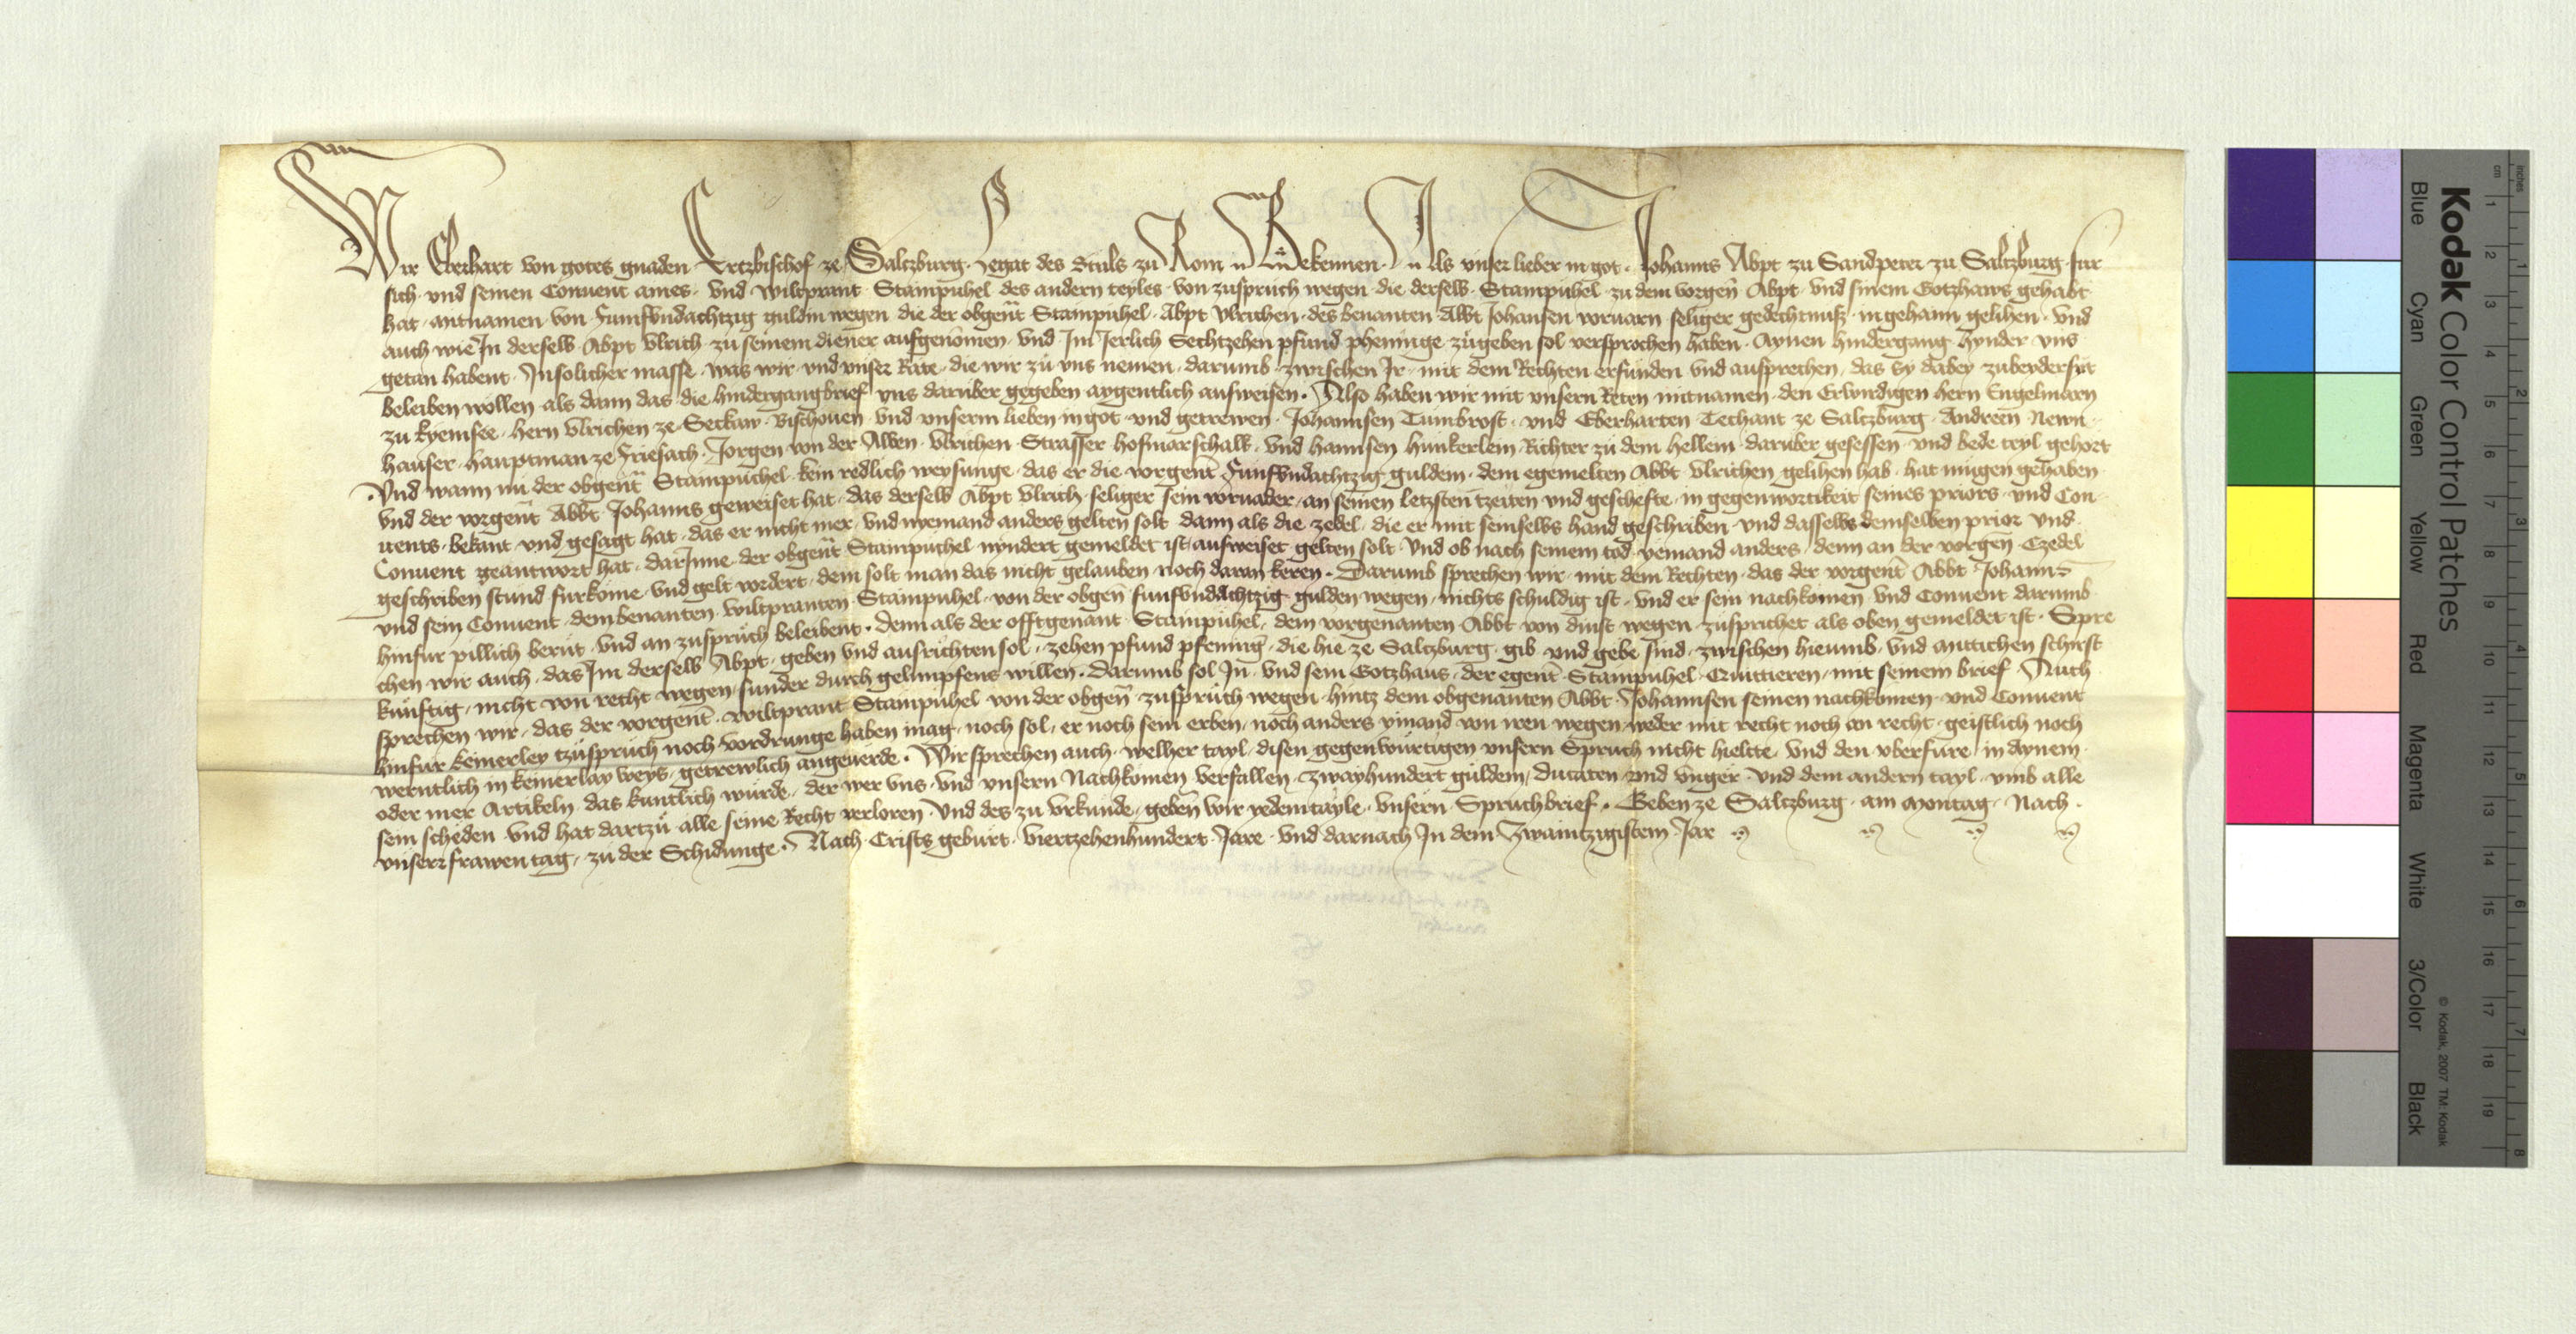 Wir Eberhart von gotes gnaden Ertzbischof ze Saltzburg Legat des Stuls zu Rom Bekennen Als vnser lieber in got Johanns Abpt zu Sandpeter zu Saltzburg fur
sich vnd seinen Conuent aines vnd Wiltprant Stampuhel des andern teyles von zuspruch wegen die derselb Stampuhel zu dem vorgen Abpt vnd sinem Gotzhaws gehabt
hat antnamen von fumfvndachtzig guldin wegen die der obgent Stampuhel Abpt Vlrichen des benanten Abbt Johansen voruarn seliger gedechtnuss in gehaim gelihen vnd
auch wie In derselb Abpt Vlrich zu seinem diener aufgenomen vnd Im Jerlich Sechtzehen pfund phenninge zugeben sol versprochen haben Aynen hindergang hynder vns
getan habent Insolicher masse was wir vnd vnser Rate die wir zu vns nemen darumb zwischen Ir mit dem Rechten erfunden vnd aussprechen das Sy dabey zubeydersyt
beleiben wollen als dann das die hindergangbrief vns daruber gegeben aygentlich ausweisen Also haben wir mit vnsern Reten mitnamen den Erwirdigen hern Engelmarn
zu kyemsee hern Vlrichen ze Seckaw Bischouen vnd vnserm lieben in got vnd getrewen Johannsen Tumbrost vnd Eberharten Techant ze Saltzburg Andreen Newn
hauser hauptman ze Friesach Jorgen von der Alben Vlrichen Strasser hofmarschalk vnd hannsen hunkerlein Richter zu dem hellein daruber gesessen vnd bede teyl gehoet
Vnd wann nu der obgent Stampuchel kein redlich weysunge das er die vorgent funfvndachtzig guldein dem egemelten Abbt Vlrichen gelihen hab hat mugen gehaben
vnd der vorgent Abbt Johanns geweiset hat das derselb Abpt Vlrich seliger sein voruader an seinen letzsten tzeiten vnd geschefte in gegenwortikeit seines priors vnd Con
uents bekant vnd gesagt hat das er nicht mer vnd nyemand anders gelten solt dann als die zedel die er mit seinselbs hand geschriben vnd dasselbs demselben prior vnd
Conuent geantwort hat darInne der obgent Stampuchel nyndert gemeldet ist ausweiset gelten solt Vnd ob nach seinem tod yemand anders denn an der vorgen Czedel
geschriben stund furkome vnd gelt vordert dem solt man das nicht gelauben noch daran keren Darumb sprechen wir mit dem Rechten das der vorgent Abbt Johanns
vnd sein Conuent dem benanten Wiltpranten Stampuhel von der obgen funfvndachtzig gulden wegen nichts schuldig ist vnd er sein nachkomen vnd Conuent darumb
hinfur pillich berut vnd an zuspruch beleibent Denn als der offtgenant Stampuhel dem vorgenanten Abbt von dinst wegen zusprichet als oben gemeldet ist Spre
chen wir auch das Im derselb Abpt geben vnd ausrichten sol zehen pfund pfening die hie ze Saltzburg gib vnd gebe sind zwischen hieumb vnd mittichen schirst
kunftig nicht von recht wegen sunder durch gelimpfens willen Darumb sol In vnd sein Gotzhaus der egent Stampuhel Quittieren mit seinem brief Auch
sprechen wir das der vorgent Wiltprant Stampuhel von der obgen zuspruch wegen hintz dem obgenanten Abbt Johannsen seinen nachkomen vnd Conuent
hinfur keinerley tzuspruch noch vordrunge haben mag noch sol er noch sein erben noch anders yemand von iren wegen weder mit recht noch an recht geistlich noch
werntlich in keinerlay weys getrewlich angeuerde Wir sprechen auch welher tayl disen gegenwurtigen vnsern Spruch nicht hieltte vnd den vberfure in aynem
oder mer Artikeln das kuntlich wurde der wer vns vnd vnsern Nachkomen verfallen zwayhundert guldein Ducaten vnd vnger vnd dem andern tayl vmb alle
sein scheden vnd hat dartzu alle seine Recht verloren Vnd des zu Vrkunde geben wir yedem tayle vnsern Spruchbrief Geben ze Saltzburg am Montag Nach
vnserr frawen tag zu der Schidunge Nach Crists geburt Viertzehenhundert Jare vnd darnach In dem Zwaintzigistem Jar
Kodak Color Control Patches
Blue Cyan Green Yellow Red Magenta White 3/Color Black
© Kodak, 2007 TM: Kodak
inches 1 2 3 4 5 6 7 8
cm 1 2 3 4 5 6 7 8 9 10 11 12 13 14 15 16 17 18 19